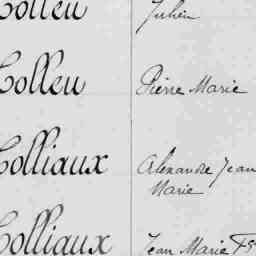 Colleu Julien
Colleu Pierre Marie
Colliaux Alexandre Jean
Marie
Colliaux Jean Marie Fs